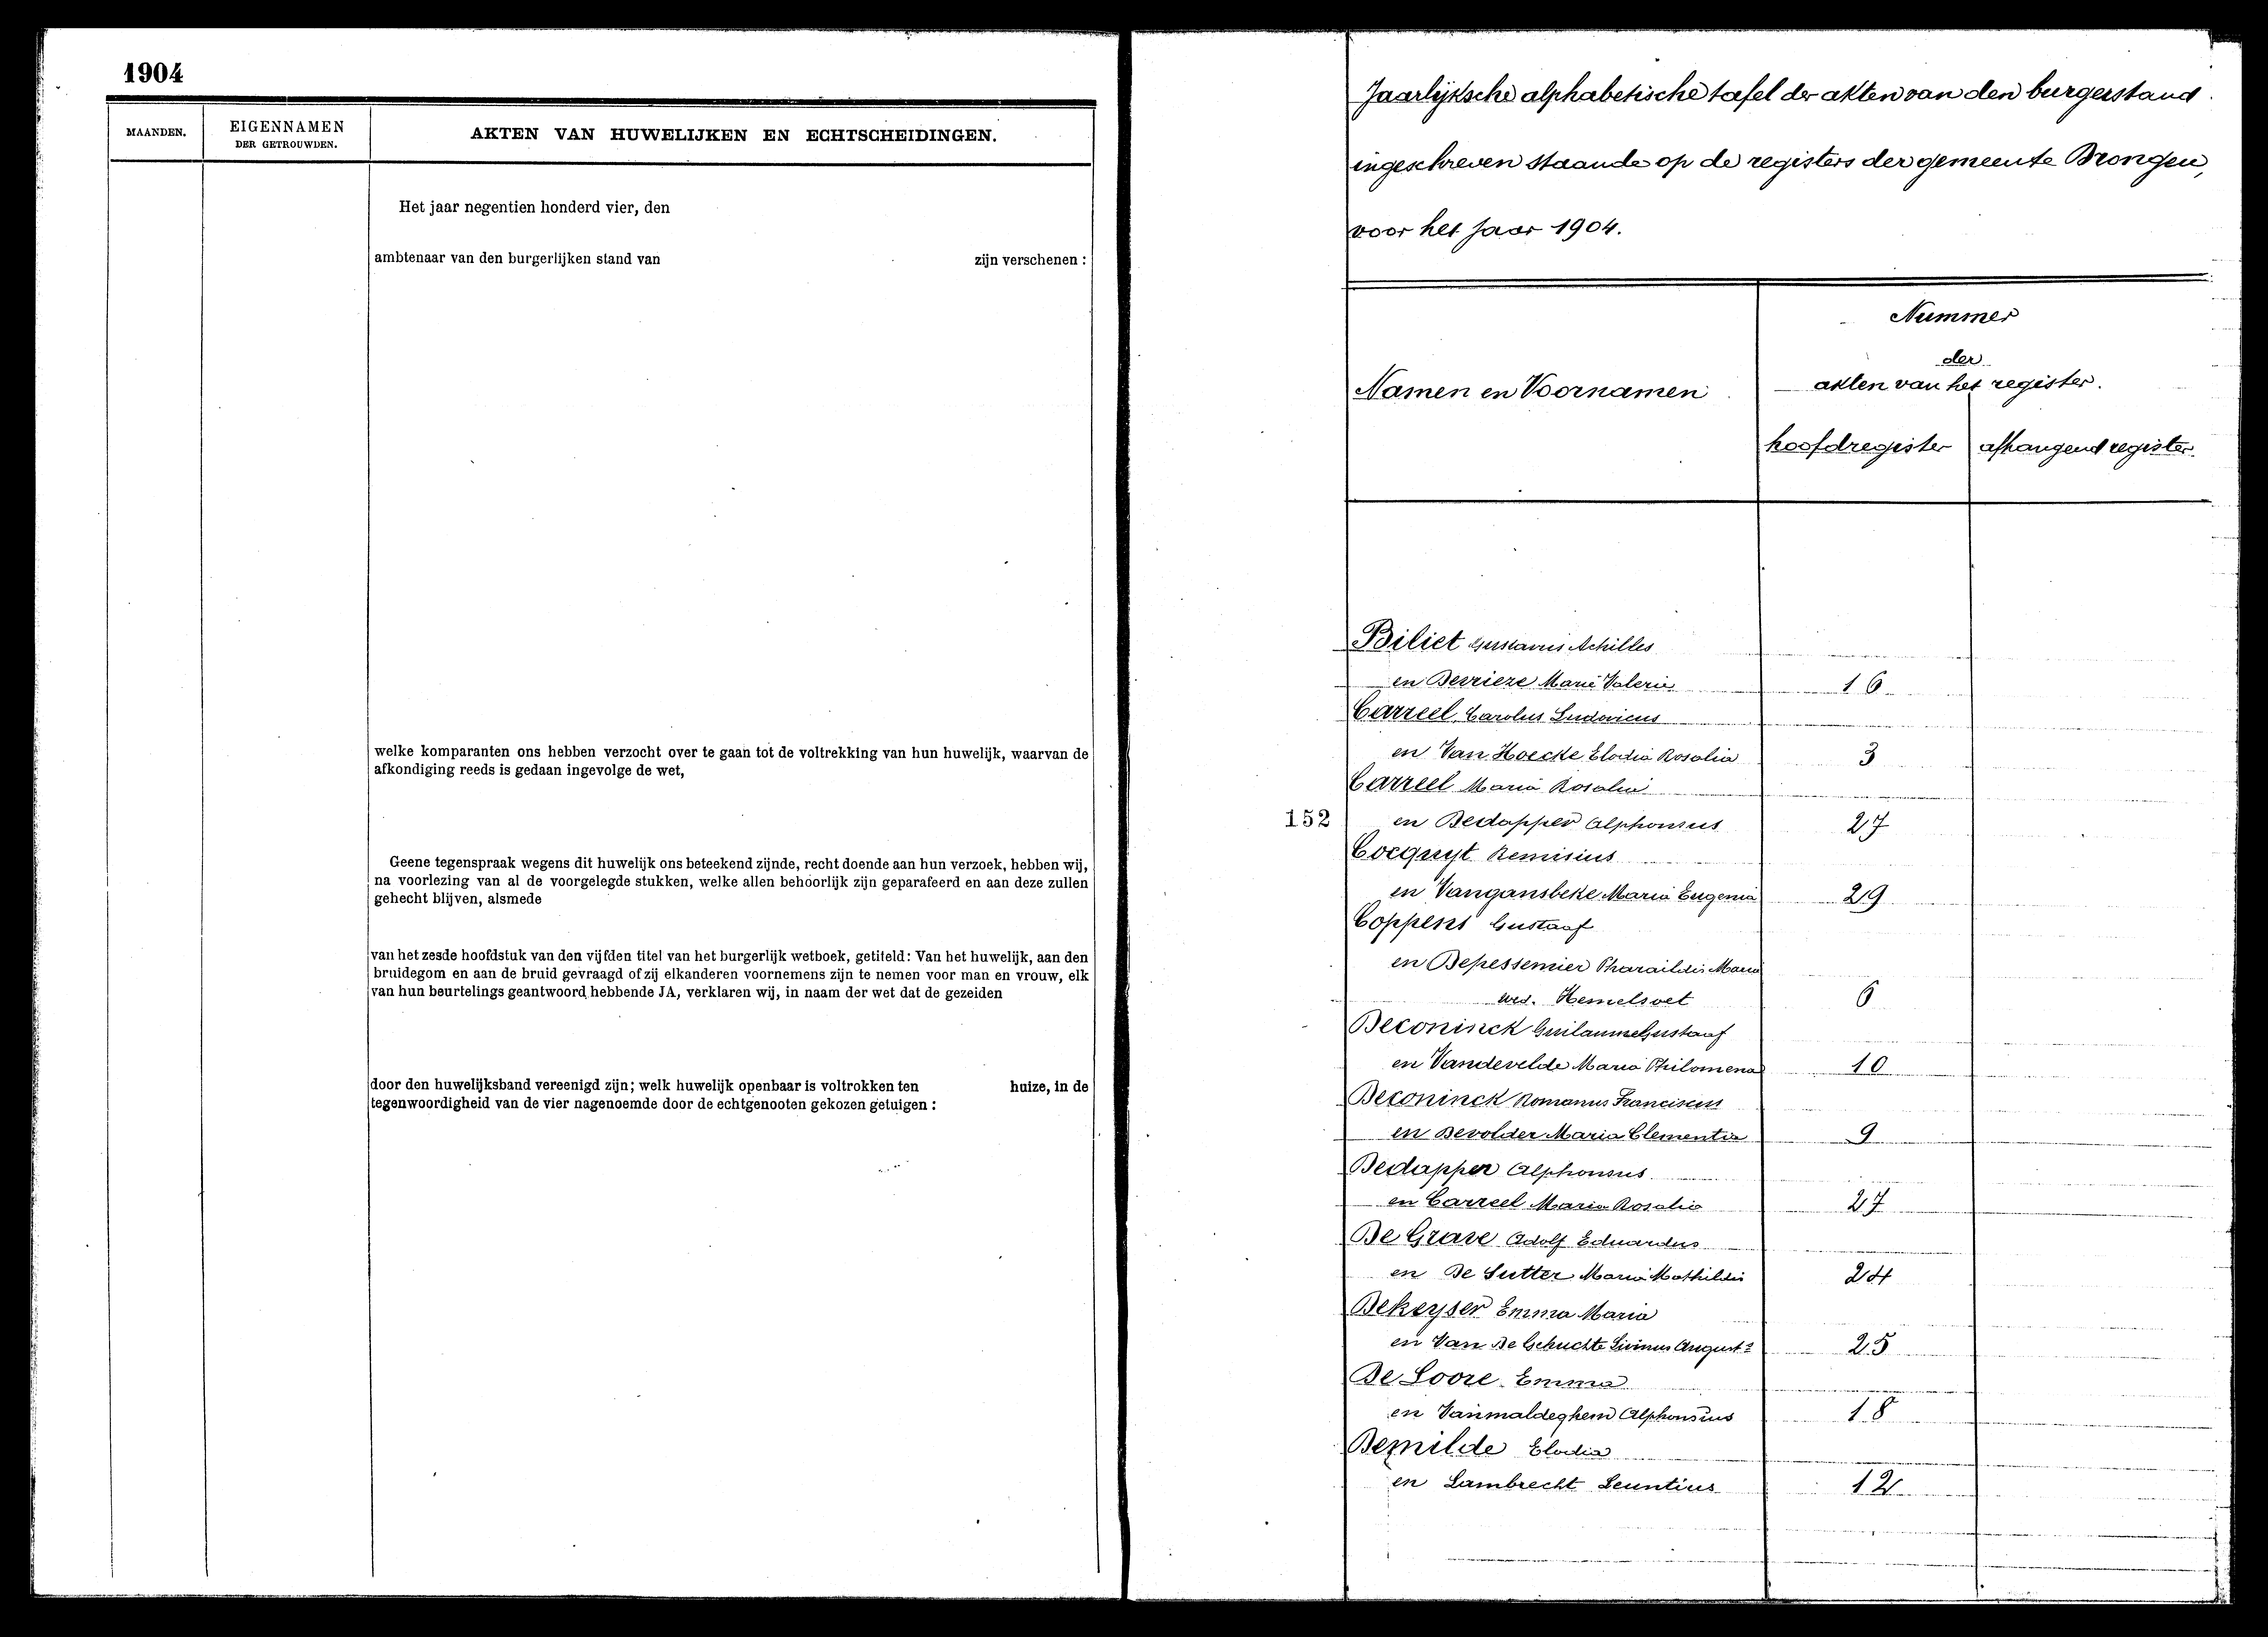 1904
MAANDEN.
EIGENNAMEN
DER GETROUWDEN.
AKTEN VAN HUWELIJKEN EN ECHTSCHEIDINGEN.
Het jaar negentien honderd vier, den
ambtenaar van den burgerlijken stand van zijn verschenen :
welke komparanten ons hebben verzocht over te gaan tot de voltrekking van hun huwelijk, waarvan de
afkondiging reeds is gedaan ingevolge de wet,
Geene tegenspraak wegens dit huwelijk ons beteekend zijnde, recht doende aan hun verzoek, hebben wij,
na voorlezing van al de voorgelegde stukken, welke allen behoorlijk zijn geparafeerd en aan deze zullen
gehecht blijven, alsmede
van het zesde hoofdstuk van den vijfden titel van het burgerlijk wetboek, getiteld: Van het huwelijk, aan den
bruidegom en aan de bruid gevraagd of zij elkanderen voornemens zijn te nemen voor man en vrouw, elk
van hun beurtelings geantwoord hebbende JA, verklaren wij, in naam der wet dat de gezeiden
door den huwelijksband vereenigd zijn; welk huwelijk openbaar is voltrokken ten huize, in de
tegenwoordigheid van de vier nagenoemde door de echtgenooten gekozen getuigen :
Jaarlijksche alphabetische tafel der akten van den burgerstand
ingeschreven staande op de registers der gemeente Drongen,
voor het jaar 1904.
Namen en Voornamen
Nummer
der
akten van het register.
hoofdregister
afhangend register.
Biliet Gustavus Achilles
en Devrieze Marie Valerie 16
Carreel Carolus Ludovicus
en Van Hoecke Elodia Rosalia 3
Carreel Maria Rosalia
152
en Dedapper Alphonsus 27
Cocquyt Remisius
en Vangansbeke Maria Eugenia 29
Coppens Gustaaf
en Depessemier Pharaildis Maria
wed. Hemelsoet 6
Deconinck Guilaume Gustaaf
en Vandevelde Maria Philomena 10
Deconinck Romanus Franciscus
en Devolder Maria Clementia 9
Dedapper Alphonsus
en Carreel Maria Rosalia 27
De Grave Adolf Eduardus
en De Sutter Maria Mathildis 24
Dekeyser Emma Maria
en Van De Gehuchte Livinus August.s 25
De Loore Emma
en Vanmaldeghem Alphonsius 18
Demilde Elodia
en Lambrecht Leuntius 12